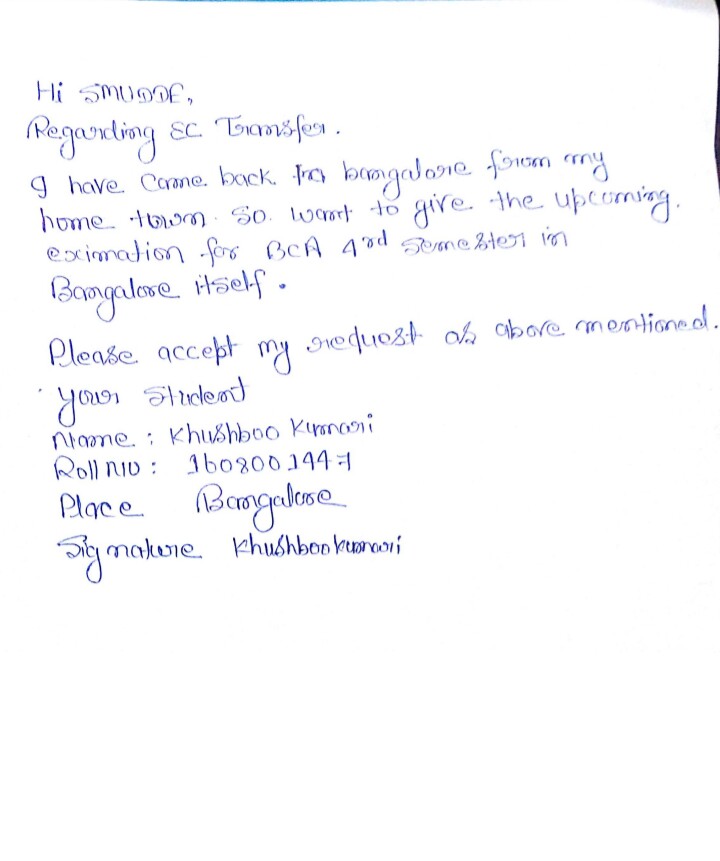 Hi SMUDDE,
Regarding EC Transfer.
I have came back to bangalore from my
home town. So want to give the upcoming.
eximation for BCA 4rd semester in
Bangalore itself.
Please accept my request as above mentioned.
your student
Name : Khushboo Kumari
Roll NO : 1608001447
Place Bangalore
Signature Khushboo kumari